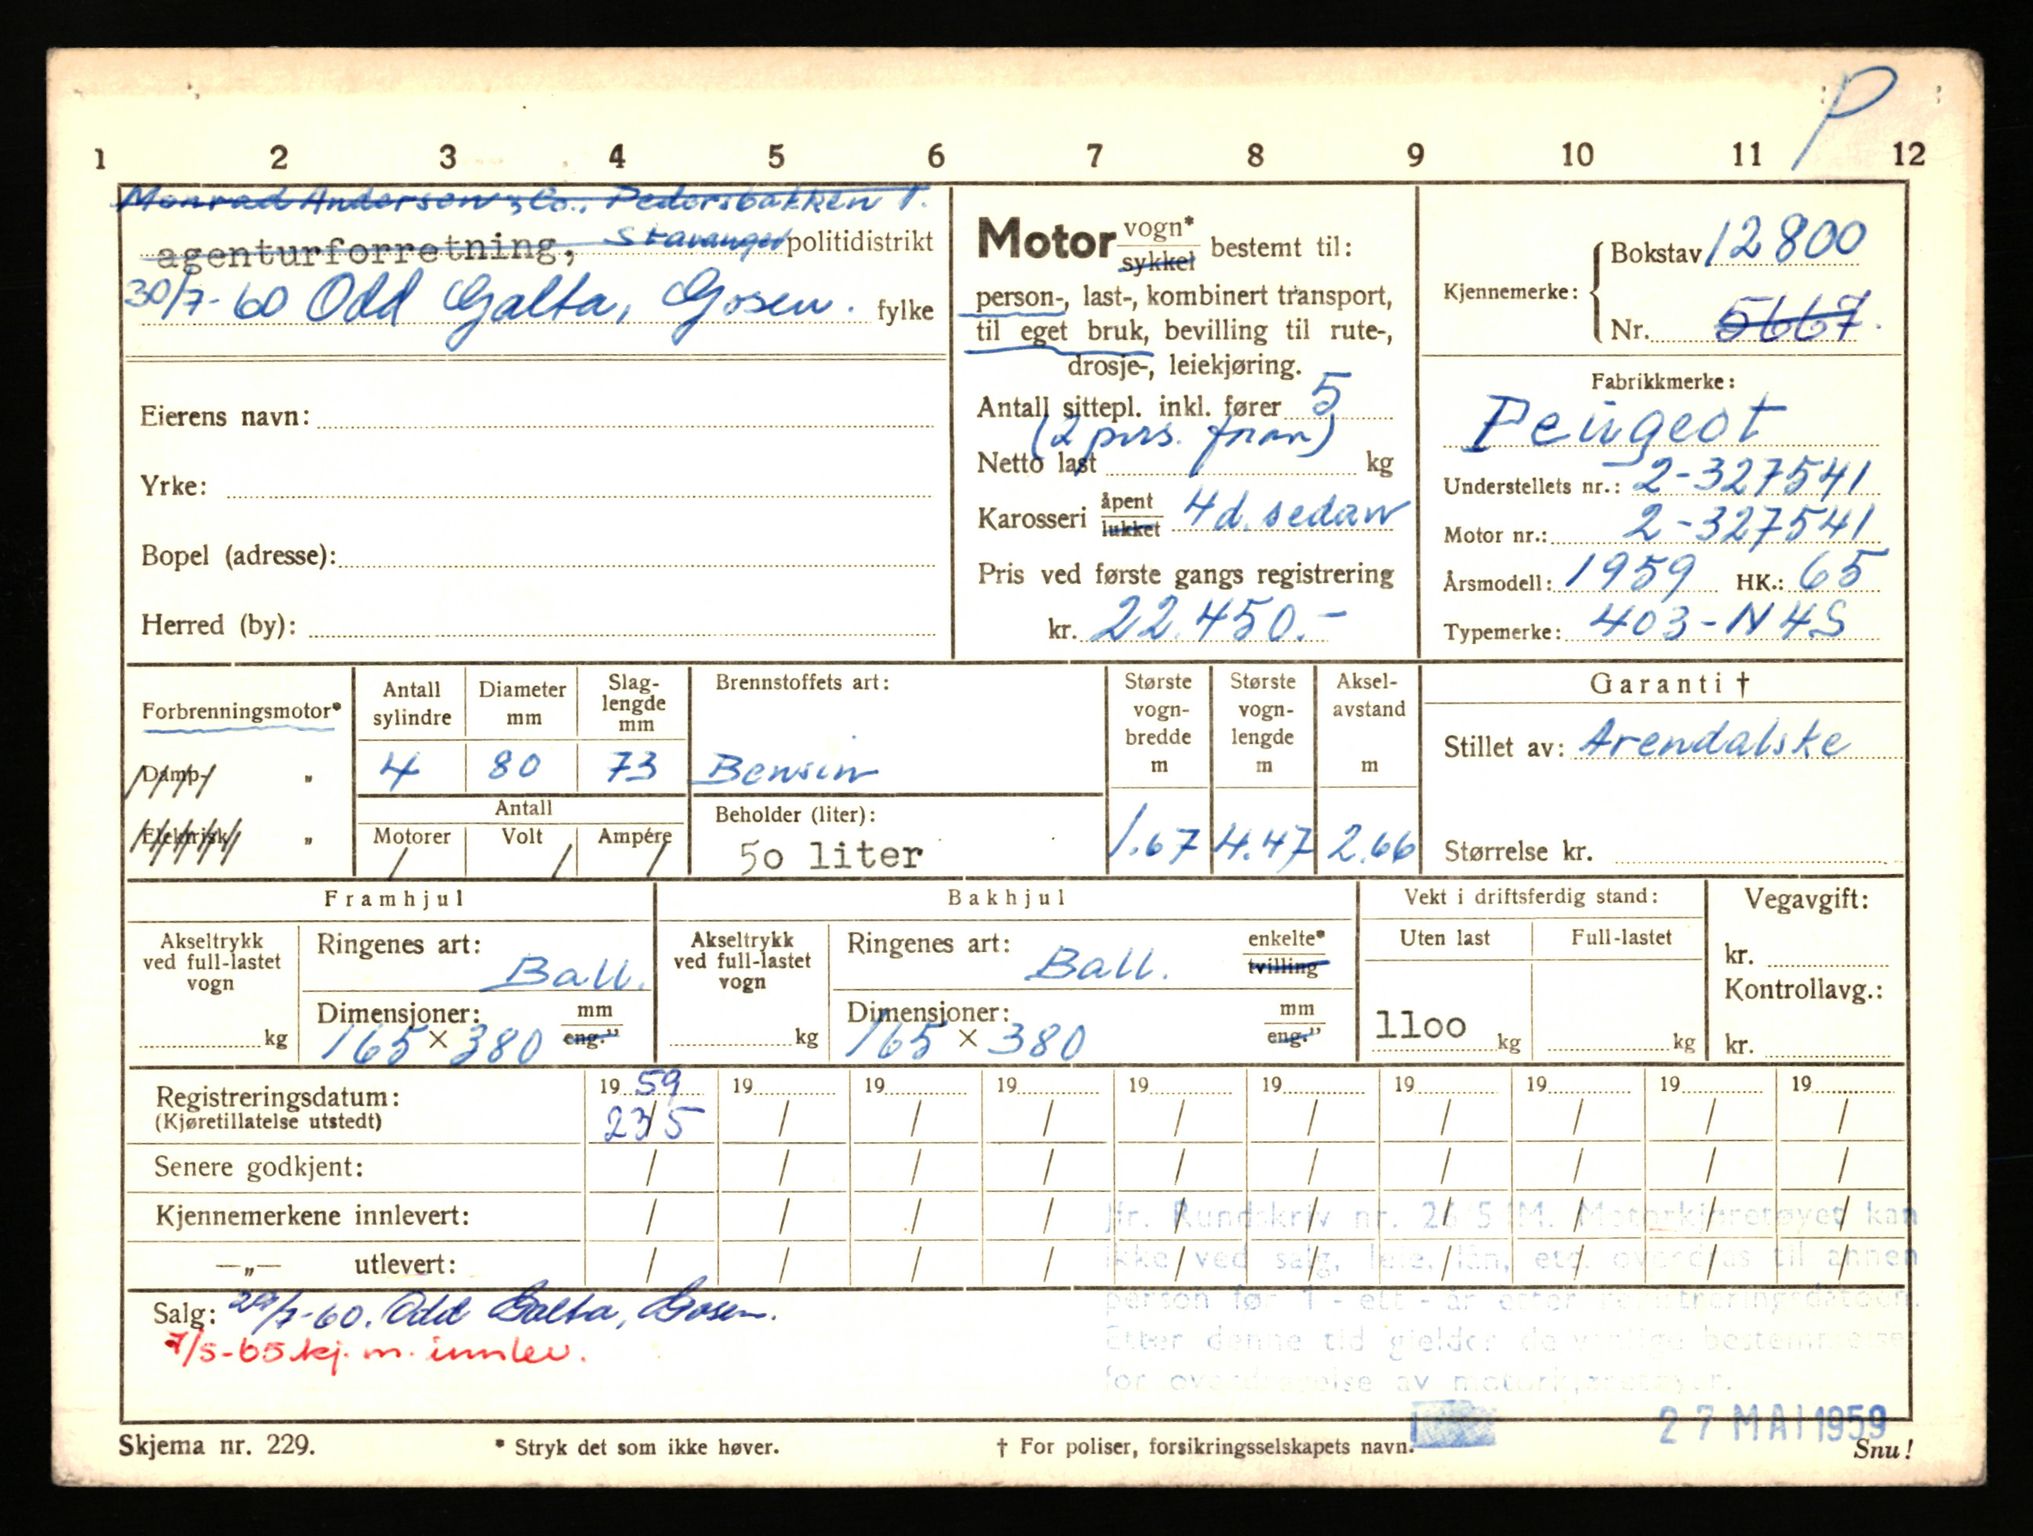 P
1 2 3 4 5 6 7 8 9 10 11 12
Monrad Andersen & Co., Pedersbakken 1.
agenturforretning, Stavanger politidistrikt
30/7-60 Odd Galta, Gosen. fylke
Eierens navn:
Yrke:
Bopel (adresse):
Herred (by):
Motor vogn* sykkel bestemt til:
person-, last-, kombinert transport,
til eget bruk, bevilling til rute-,
drosje-, leiekjøring.
Antall sittepl. inkl. fører 5
(2 pers. foran)
Netto last kg
Karosseri åpent lukket 4d. sedan
Pris ved første gangs registrering
kr. 22.450.-
Kjennemerke: Bokstav 12800
Nr. 5667.
Fabrikkmerke:
Peugeot
Understellets nr.: 2-327541
Motor nr.: 2-327541
Årsmodell: 1959 HK.: 65
Typemerke: 403-N4S
Forbrenningsmotor*
Damp- „
Elektrisk „
Antall sylindre
Diameter mm
Slag-lengde mm
4 80 73
Antall
Motorer Volt Ampére
/ / /
Brennstoffets art:
Bensin
Beholder (liter):
50 liter
Største vogn-bredde m
1.67
Største vogn-lengde m
4.47
Aksel-avstand m
2.66
Garanti †
Stillet av: Arendalske
Størrelse kr.
Framhjul
Akseltrykk ved full-lastet vogn
kg
Ringenes art:
Ball.
Dimensjoner: mm eng."
165 × 380
Bakhjul
Akseltrykk ved full-lastet vogn
kg
Ringenes art: enkelte* tvilling
Ball.
Dimensjoner: mm eng."
165 × 380
Vekt i driftsferdig stand:
Uten last Full-lastet
1100 kg kg
Vegavgift:
kr.
Kontrollavg.:
kr.
Registreringsdatum: 19 59 19 19 19 19 19 19 19 19 19
(Kjøretillatelse utstedt) 23/5 / / / / / / / / /
Senere godkjent: / / / / / / / / / /
Kjennemerkene innlevert: / / / / / / / / / /
—„— utlevert: / / / / / / / / / /
Jfr. Rundskriv nr. 26 5 M. Motorkjøretøyet kan
ikke ved salg, leie, lån, etc. overdras til annen
person før 1 - ett - år etter registreringsdatoen.
Etter denne tid gjelder de vanlige bestemmelser
for overdragelse av motorkjøretøyer.
Salg: 29/7-60. Odd Galta, Gosen.
7/5-65 kj. m. innlev.
27 MAI 1959
Skjema nr. 229. * Stryk det som ikke høver. † For poliser, forsikringsselskapets navn. Snu!